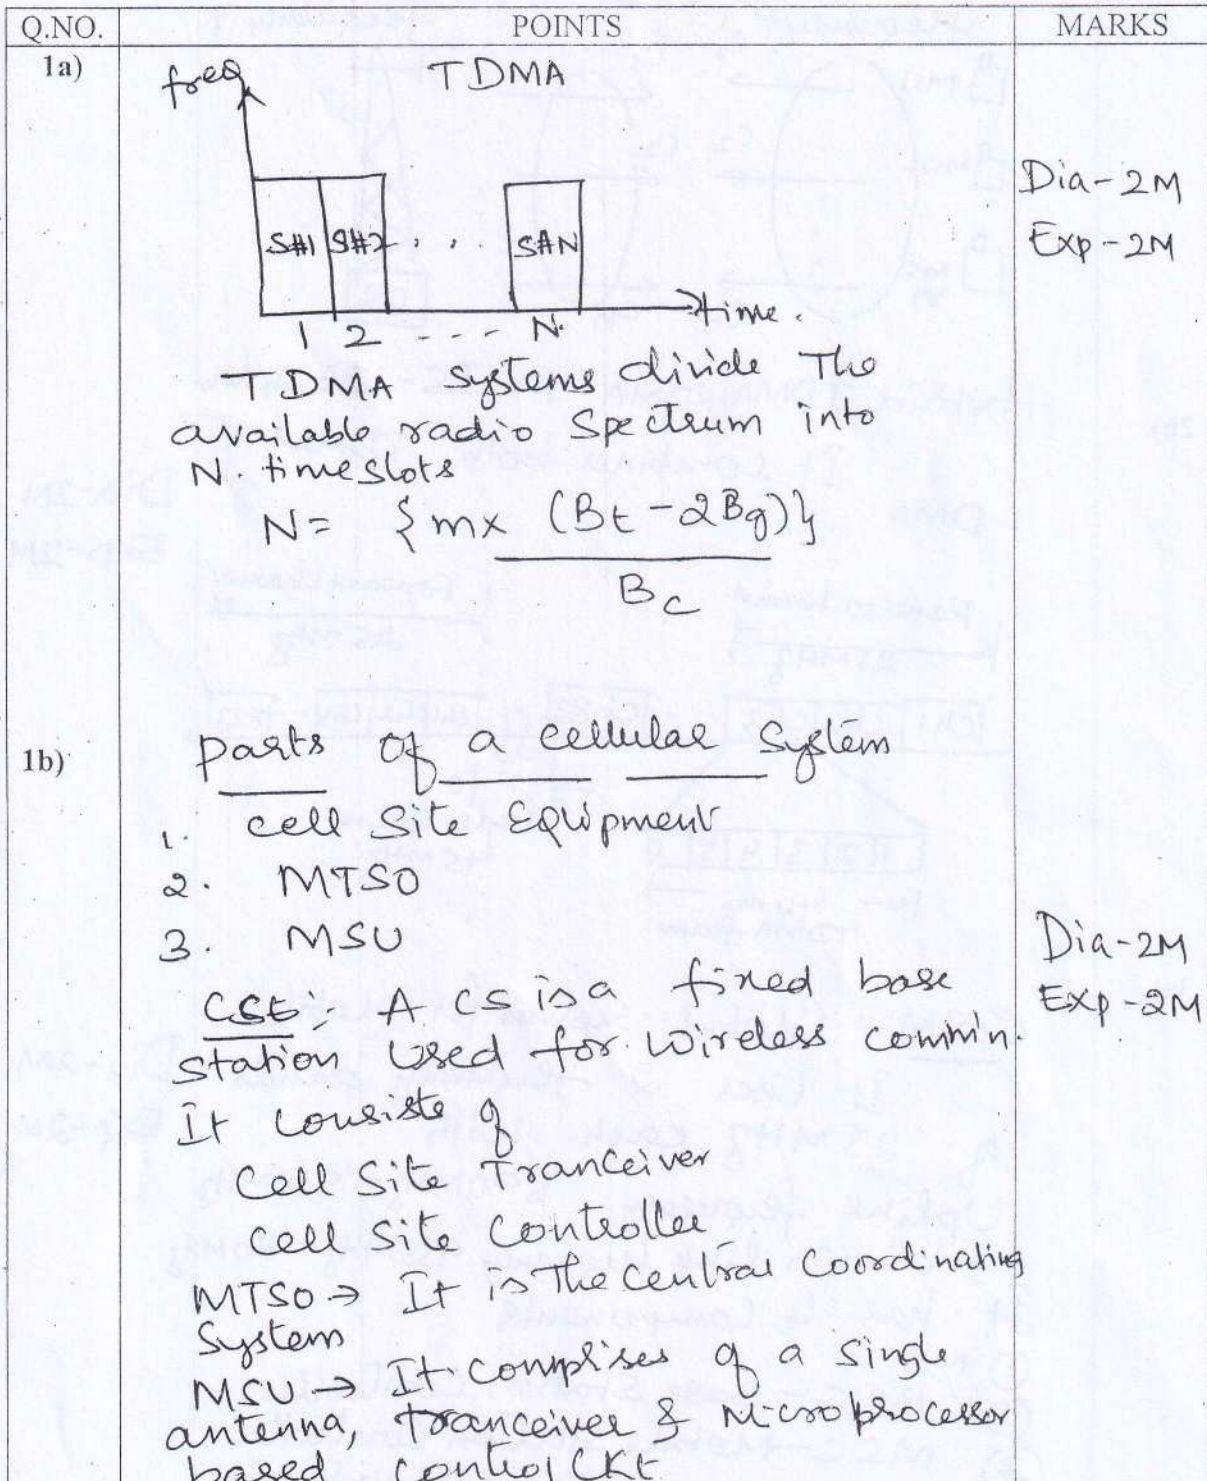 Q.NO. POINTS MARKS
1a)
freq TDMA
S#1 S#2 . . . S#N
1 2 - - - - N. time.
Dia-2M
Exp-2M
TDMA systems divide The
available radio Spectrum into
N. timeslots
N= {mx (Bt-2Bg)}
Bc
1b)
parts of a cellular system
1. cell Site Equipment
2. MTSO
3. MSU
Dia-2M
Exp-2M
CSE:- A CS is a fixed base
station Used for Wireless commn.
It consists of
Cell Site Tranceiver
Cell Site Controller
MTSO → It is The Central Coordinating
System
MSU → It comprises of a single
antenna, tranceiver & Microprocessor
based control CKt